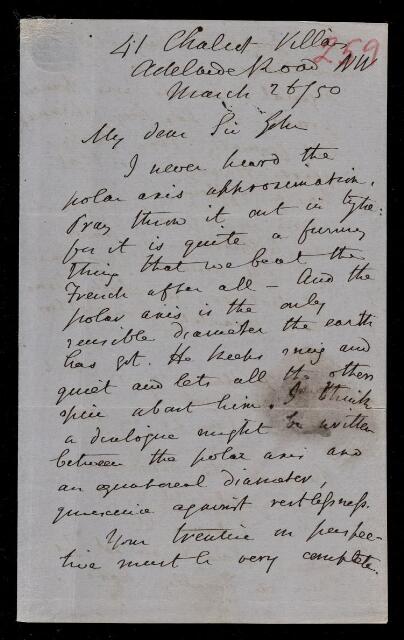 41 Chalcot Villas
259
Adelaide Road NW
March 26/50
My dear Sir John
I never heard the
polar axis approximation.
Pray throw it out in type:
for it is quite a funny
thing that we beat the
French after all – And the
polar axis is the only
sensible diameter the earth
has got. He keeps snug and
quiet and lets all the others
spin about him. I think
a dialogue might be written
between the polar axis and
an equatoreal diameter,
quiescence against restlessness.
Your treatise on perspec-
tive must be very complete.